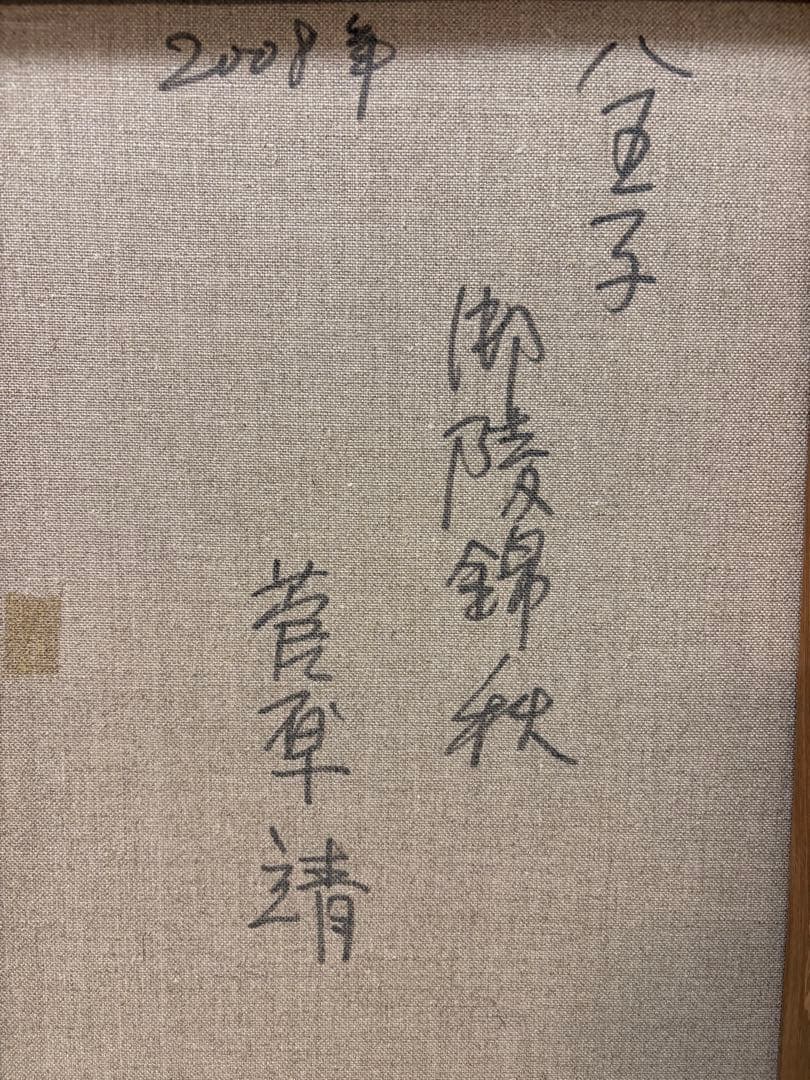 八王子
御陵錦秋
菅 靖
2008年